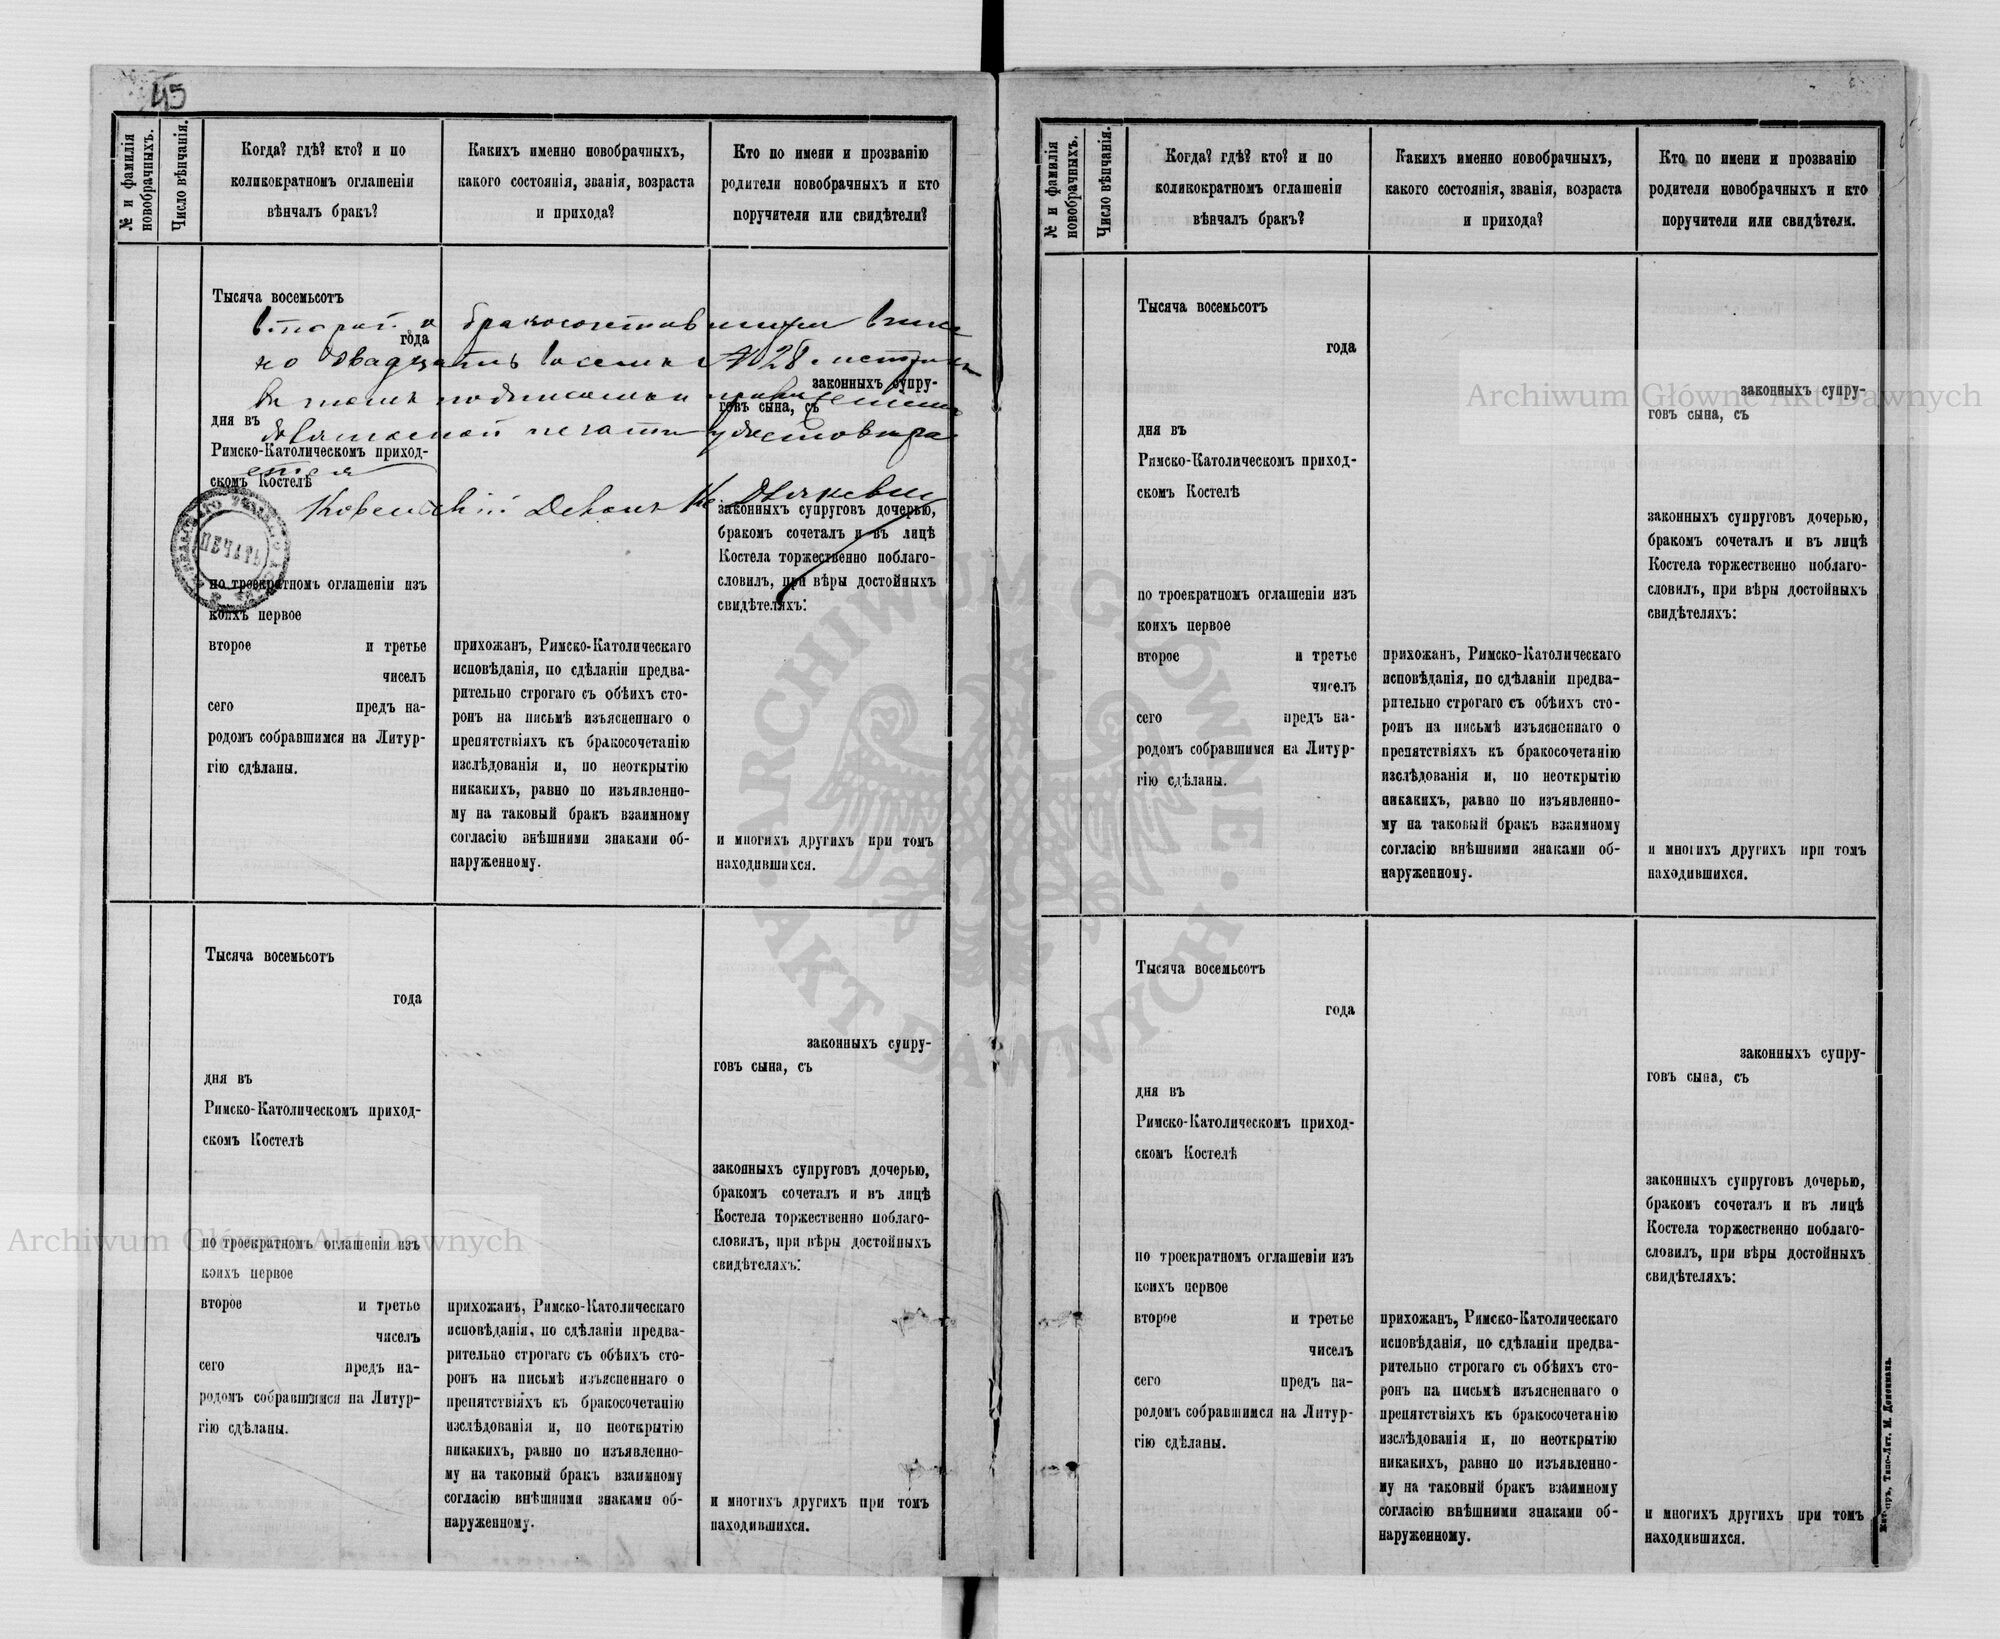 45
№ и фамилія новобрачныхъ.
Число вѣнчанія.
Когда? гдѣ? кто? и по
коликократномъ оглашеніи
вѣнчалъ бракъ?
Какихъ именно новобрачныхъ,
какого состоянія, званія, возраста
и прихода?
Кто по имени и прозванію
родители новобрачныхъ и кто
поручители или свидѣтели?
Тысяча восемьсотъ
года
бракосочетавшихся
двадцать восемь № 28
законныхъ супру-
говъ сына, съ
дня въ
печати
Римско-Католическомъ приход-
скомъ Костелѣ
Ковельскій Деканъ
ПЕЧАТЬ
по троекратномъ оглашеніи изъ
коихъ первое
второе и третье
чиселъ
сего предъ на-
родомъ собравшимся на Литур-
гію сдѣланы.
прихожан, Римско-Католическаго
исповѣданія, по сдѣланіи предва-
рительно строгаго съ обѣихъ сто-
ронъ на письмѣ изъясненнаго о
препятствіяхъ къ бракосочетанію
изслѣдованія и, по неоткрытію
никакихъ, равно по изъявленно-
му на таковый бракъ взаимному
согласію внѣшними знаками об-
наруженному.
законныхъ супруговъ дочерью,
бракомъ сочеталъ и въ лицѣ
Костела торжественно поблаго-
словилъ, при вѣры достойныхъ
свидѣтеляхъ:
и многихъ другихъ при томъ
находившихся.
Тысяча восемьсотъ
года
дня въ
Римско-Католическомъ приход-
скомъ Костелѣ
по троекратномъ оглашеніи изъ
коихъ первое
второе и третье
чиселъ
сего предъ на-
родомъ собравшимся на Литур-
гію сдѣланы.
прихожанъ, Римско-Католическаго
исповѣданія, по сдѣланіи предва-
рительно строгаго съ обѣихъ сто-
ронъ на письмѣ изъясненнаго о
препятствіяхъ къ бракосочетанію
изслѣдованія и, по неоткрытію
никакихъ, равно по изъявленно-
му на таковый бракъ взаимному
согласію внѣшними знаками об-
наруженному.
законныхъ супру-
говъ сына, съ
законныхъ супруговъ дочерью,
бракомъ сочеталъ и въ лицѣ
Костела торжественно поблаго-
словилъ, при вѣры достойныхъ
свидѣтеляхъ:
и многихъ другихъ при томъ
находившихся.
№ и фамилія новобрачныхъ.
Число вѣнчанія.
Когда? гдѣ? кто? и по
коликократномъ оглашеніи
вѣнчалъ бракъ?
Какихъ именно новобрачныхъ,
какого состоянія, званія, возраста
и прихода?
Кто по имени и прозванію
родители новобрачныхъ и кто
поручители или свидѣтели.
Тысяча восемьсотъ
года
дня въ
Римско-Католическомъ приход-
скомъ Костелѣ
по троекратномъ оглашеніи изъ
коихъ первое
второе и третье
чиселъ
сего предъ на-
родомъ собравшимся на Литур-
гію сдѣланы.
прихожан, Римско-Католическаго
исповѣданія, по сдѣланіи предва-
рительно строгаго съ обѣихъ сто-
ронъ на письмѣ изъясненнаго о
препятствіяхъ къ бракосочетанію
изслѣдованія и, по неоткрытію
никакихъ, равно по изъявленно-
му на таковый бракъ взаимному
согласію внѣшними знаками об-
наруженному.
законныхъ супру-
говъ сына, съ
законныхъ супруговъ дочерью,
бракомъ сочеталъ и въ лицѣ
Костела торжественно поблаго-
словилъ, при вѣры достойныхъ
свидѣтеляхъ:
и многихъ другихъ при томъ
находившихся.
Тысяча восемьсотъ
года
дня въ
Римско-Католическомъ приход-
скомъ Костелѣ
по троекратномъ оглашеніи изъ
коихъ первое
второе и третье
чиселъ
сего предъ на-
родомъ собравшимся на Литур-
гію сдѣланы.
прихожанъ, Римско-Католическаго
исповѣданія, по сдѣланіи предва-
рительно строгаго съ обѣихъ сто-
ронъ на письмѣ изъясненнаго о
препятствіяхъ къ бракосочетанію
изслѣдованія и, по неоткрытію
никакихъ, равно по изъявленно-
му на таковый бракъ взаимному
согласію внѣшними знаками об-
наруженному.
законныхъ супру-
говъ сына, съ
законныхъ супруговъ дочерью,
бракомъ сочеталъ и въ лицѣ
Костела торжественно поблаго-
словилъ, при вѣры достойныхъ
свидѣтеляхъ:
и многихъ другихъ при томъ
находившихся.
Типо-Лит. М. Дененмана.
Archiwum Główne Akt Dawnych
Archiwum Główne Akt Dawnych
ARCHIWUM GŁÓWNE
AKT DAWNYCH